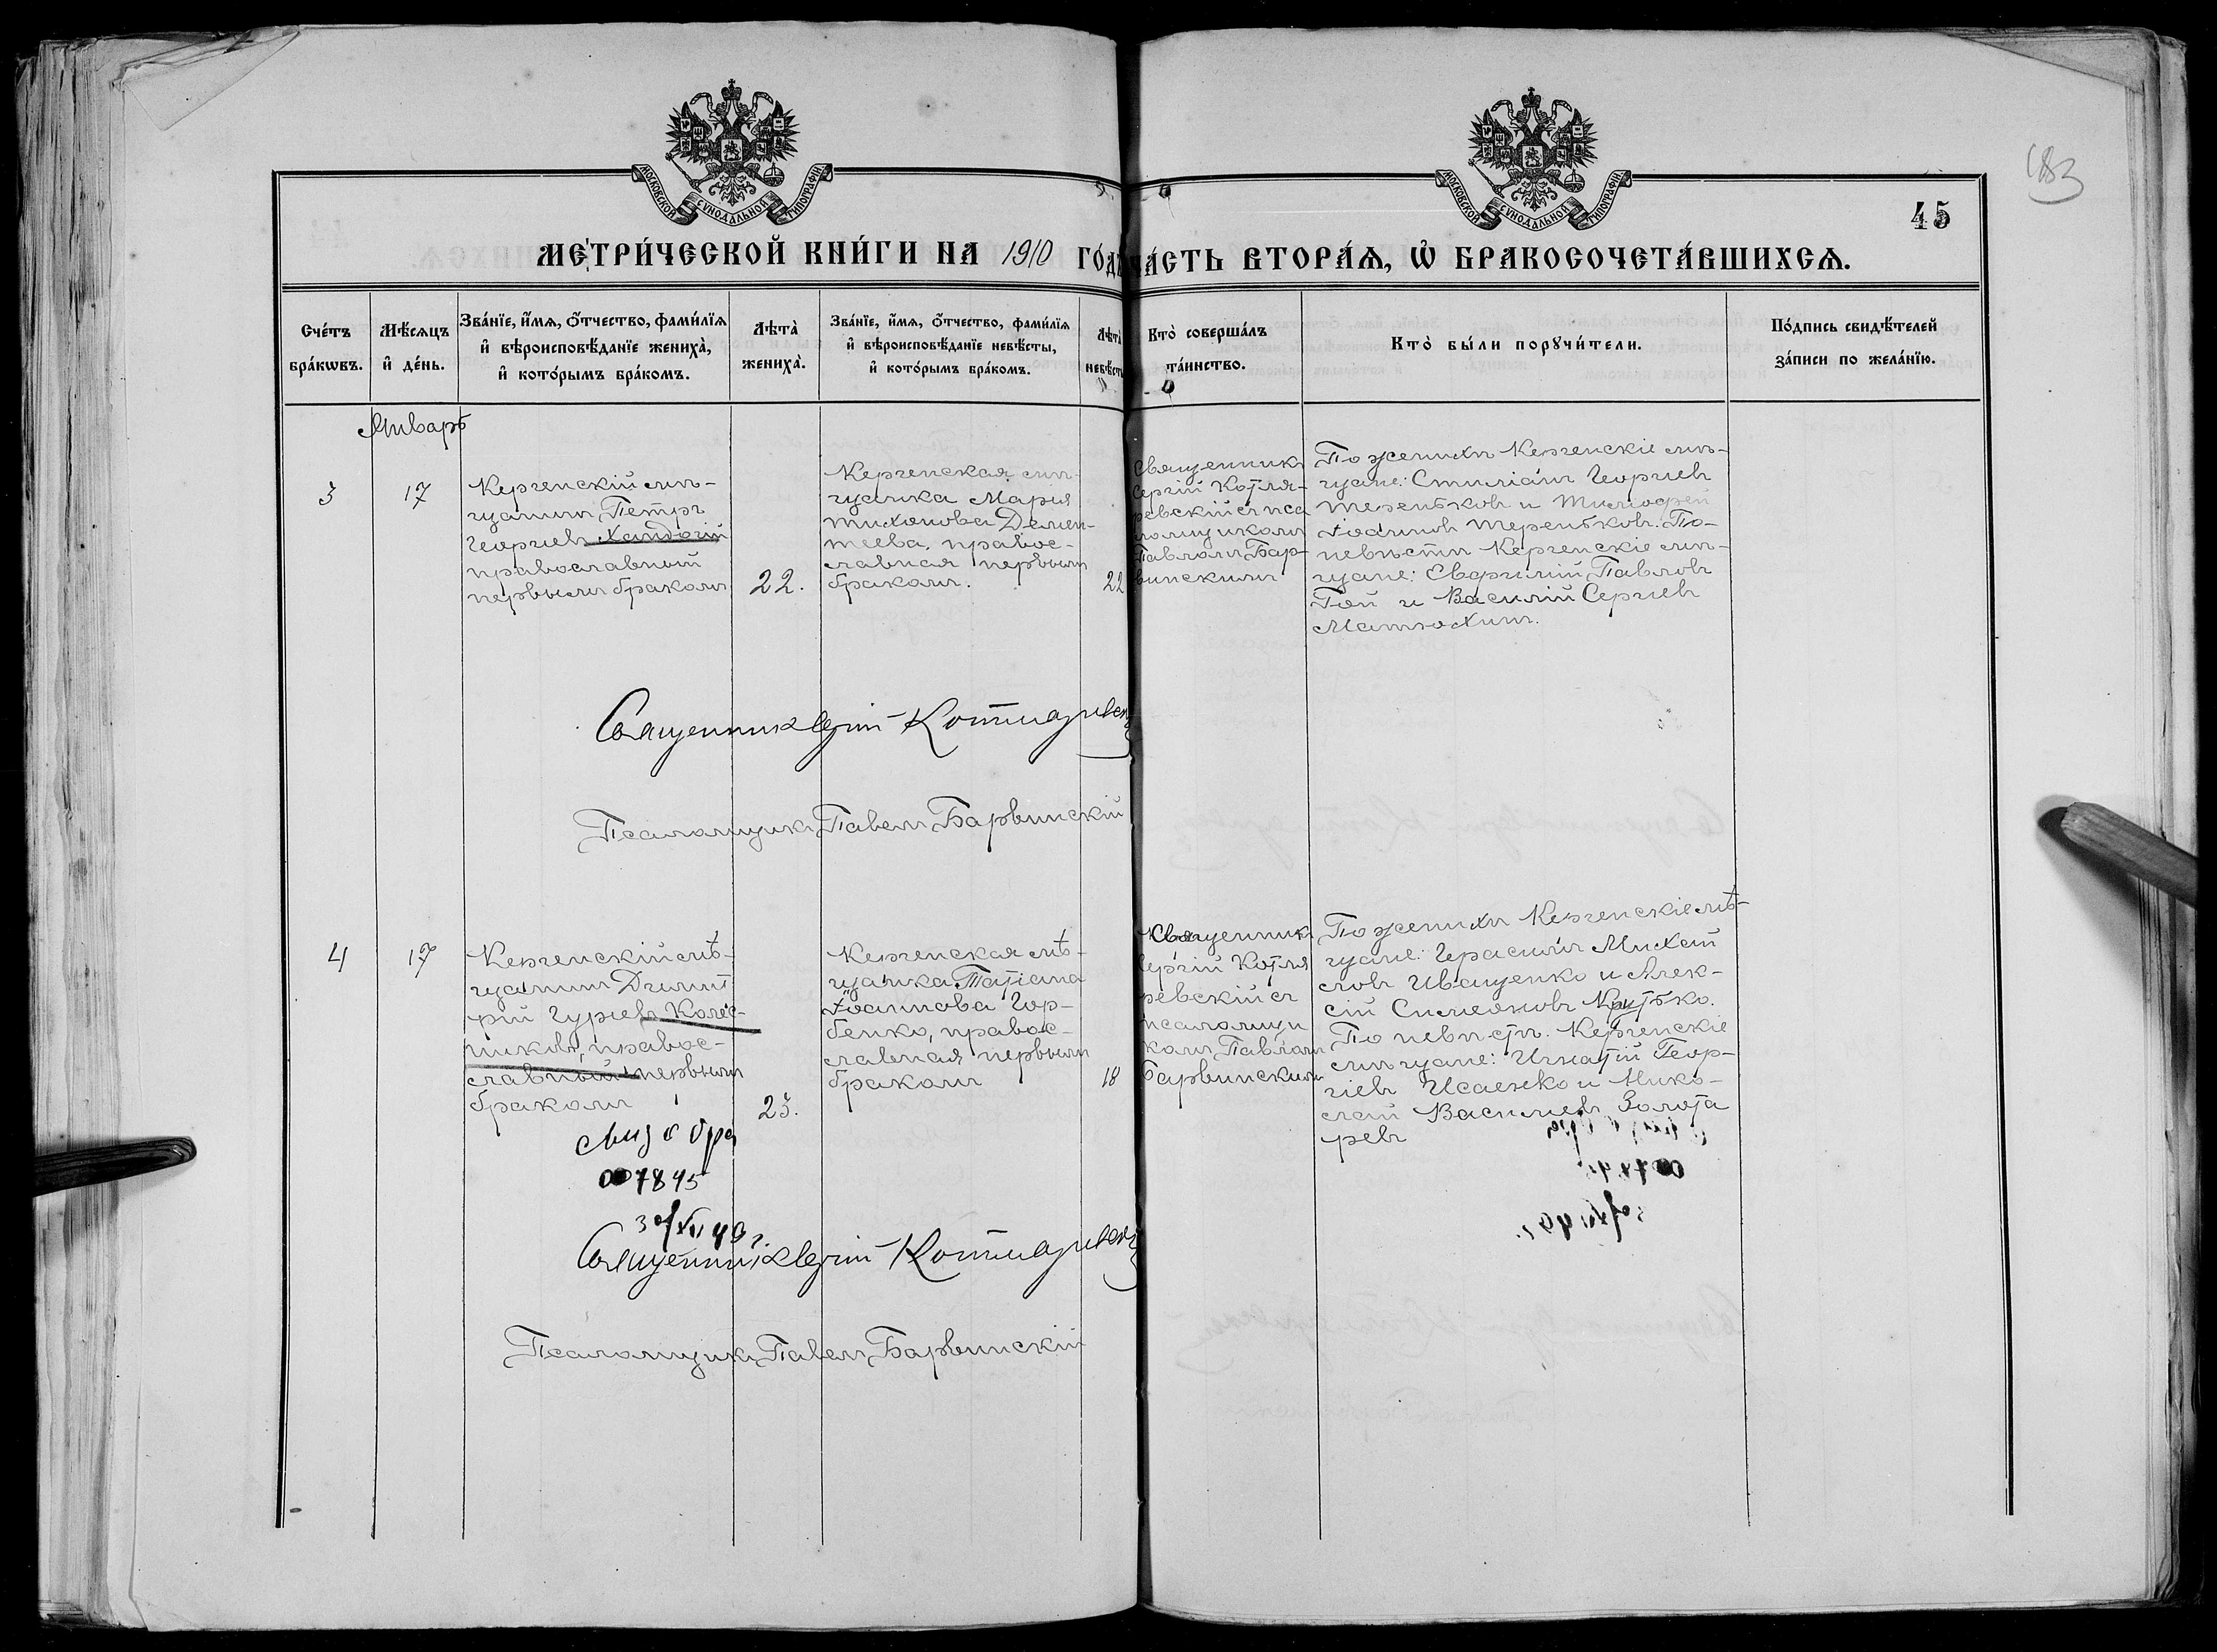 МОСКОВСКОЙ СѴНОДАЛЬНОЙ ТИПОГРАФІИ
МОСКОВСКОЙ СѴНОДАЛЬНОЙ ТИПОГРАФІИ
183
45
МЕТРИ́ЧЕСКОЙ КНИ́ГИ НА 1910 ГО́ДЪ
ЧА́СТЬ ВТОРА́Я, Ѡ БРАКОСОЧЕТА́ВШИХСЯ.
Сче́тъ
бра́кѡвъ.
Мѣ́сяцъ
и҆ де́нь.
Зва́нїе, и҆́мя, ѻ҆́тчество, фами́лїя
и҆ вѣроисповѣ́данїе жениха̀,
и҆ кото́рымъ бра́комъ.
Лѣта̀
жениха̀.
Зва́нїе, и҆́мя, ѻ҆́тчество, фами́лїя
и҆ вѣроисповѣ́данїе невѣ́сты,
и҆ кото́рымъ бра́комъ.
Лѣта̀
невѣ́сты
Кто̀ соверша́лъ
та́инство.
Кто̀ бы́ли порꙋчи́тели.
По́дпись свидѣ́телей
за́писи по жела́нїю.
Январь
3
17
Керченскій мѣ-
щанинъ Петръ
Георгіевъ Хандогій
православный
первымъ бракомъ
22.
Керченская мѣ-
щанка Марія
Тихонова Демен-
теева, правос-
лавная первымъ
бракомъ.
22
Священникъ
Сергій Котля-
ревскій съ пса
ломщикомъ
Павломъ Бар-
винскимъ
По женихѣ Керченскіе мѣ-
щане: Стиліанъ Георгіевъ
Терентьковъ и Тимофей
Іоанновъ Терентьковъ. По-
невѣстѣ Керченскіе мѣ-
щане: Павловъ
Гой и Василій Сергіевъ
Матюхинъ.
Священникъ Сергій Котляревскій
Псаломщикъ Павелъ Барвинскій
4
17
Керченскій мѣ-
щанинъ Димит
рій Гуріевъ Колес-
никовъ, правос-
лавный первымъ
бракомъ
23.
Керченская мѣ-
щанка Татіана
Іоаннова Гор-
бенко, правос-
лавная первымъ
бракомъ
18
Священникъ
Сергій Котля
ревскій съ
псаломщи
комъ Павломъ
Барвинскимъ
По женихѣ Керченскіе мѣ-
щане: Герасимъ Михай
ловъ Иващенко и Алек-
сій Симеоновъ Крутько.
По невѣстѣ. Керченскіе
мѣщане: Игнатій Геор-
гіевъ Исаенко и Нико-
лай Василіевъ Золота
ревъ
007845
Священникъ Сергій Котляревскій
Псаломщикъ Павелъ Барвинскій